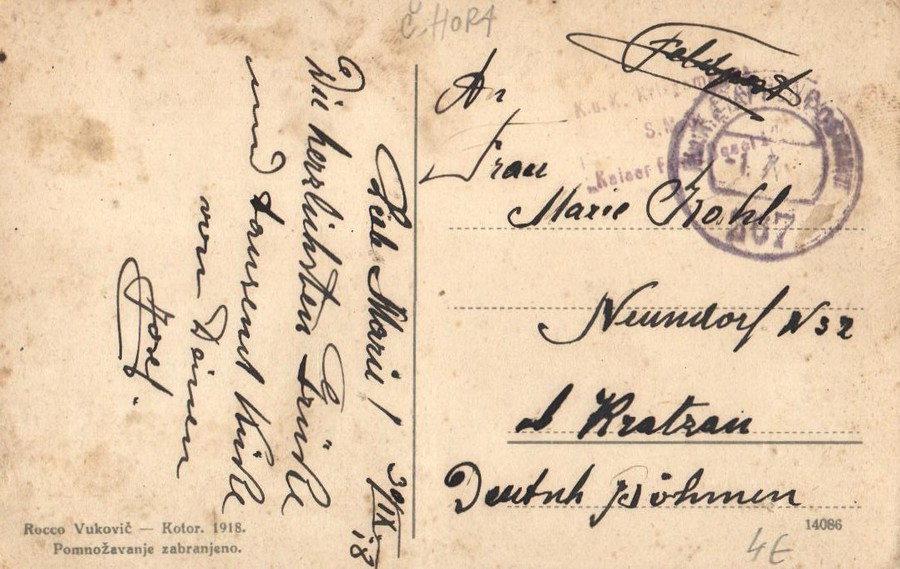 Č. HORA
Feldpost
An
Frau
Marie Kohl
Neundorf N 32
b Kratzau
Deutsch Böhmen
K.u.K. Kriegsma
S.M.
"Kaiser
267
Lieb Marie! 30/IX 18
Die herzlichsten Grüße
und tausend Küße
von Deinen
Josef.
Rocco Vukovič — Kotor. 1918.
Pomnožavanje zabranjeno.
14086
4E